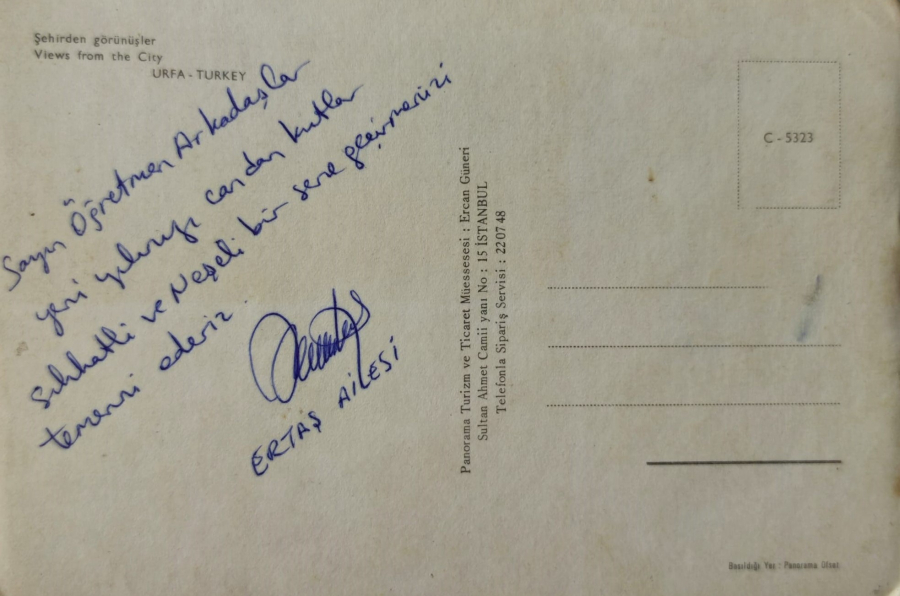 Şehirden görünüşler
Views from the City
URFA - TURKEY
Sayın Öğretmen Arkadaşlar
yeni yılınızı candan kutlar
sıhhatli ve Neşeli bir sene geçirmenizi
temenni ederiz.
ERTAŞ AİLESİ
Panorama Turizm ve Ticaret Müessesesi : Ercan Güneri
Sultan Ahmet Camii yanı No : 15 İSTANBUL
Telefonla Sipariş Servisi : 22 07 48
C - 5323
Basıldığı Yer : Panorama Ofset